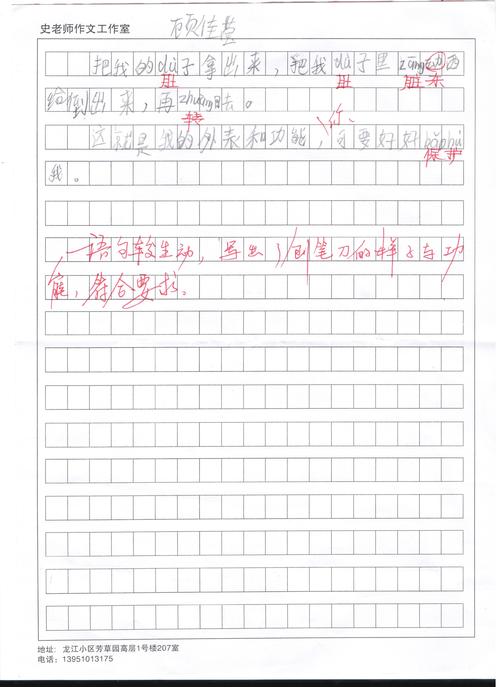 史老师作文工作室
顾佳莹
把我的dù子拿出来，把我dù子里zāng动西
肚 肚 脏东
给倒出来，再zhuǎng回去。
转
你、
这就是我的外表和功能，可要好好bǎohù
保护
我。
语句较生动，写出了刨笔刀的样子与功
能，符合要求。
地址：龙江小区芳草园高层1号楼207室
电话：13951013175